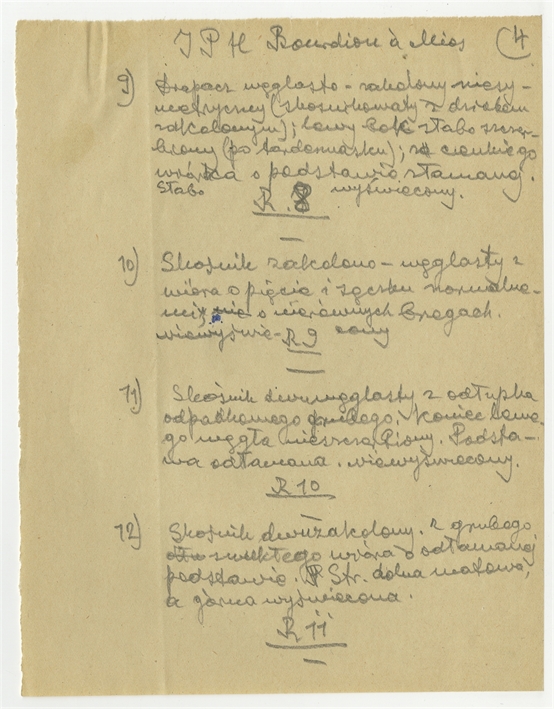 I P H Bourdiou à Mios (4
9) Drapacz węglasto - zakolony niesy-
metryczny (skośnikowaty z dziobem
zakolonym); lewy bok słabo szczer-
biony (po tardenuasku); z cienkiego
wiórka o podstawie złamanej.
Słabo wyświecony.
R. 8
10) Skośnik zakolono - węglasty z
wióra o pięcie i sęczku normalne-
mi, o nierównych bregach.
niewyświe- R 9 cony
11) Skośnik dwuwęglasty z odłupka
odpadkowego grubego. Koniec lewe-
go węgła Podsta-
wa odłamana. niewyświecony.
R 10
12) Skośnik dwuzakolony. z grubego
zwykłego wióra o odłamanej
podstawie. Str. dolna matowa,
a górna wyświecona.
R 11